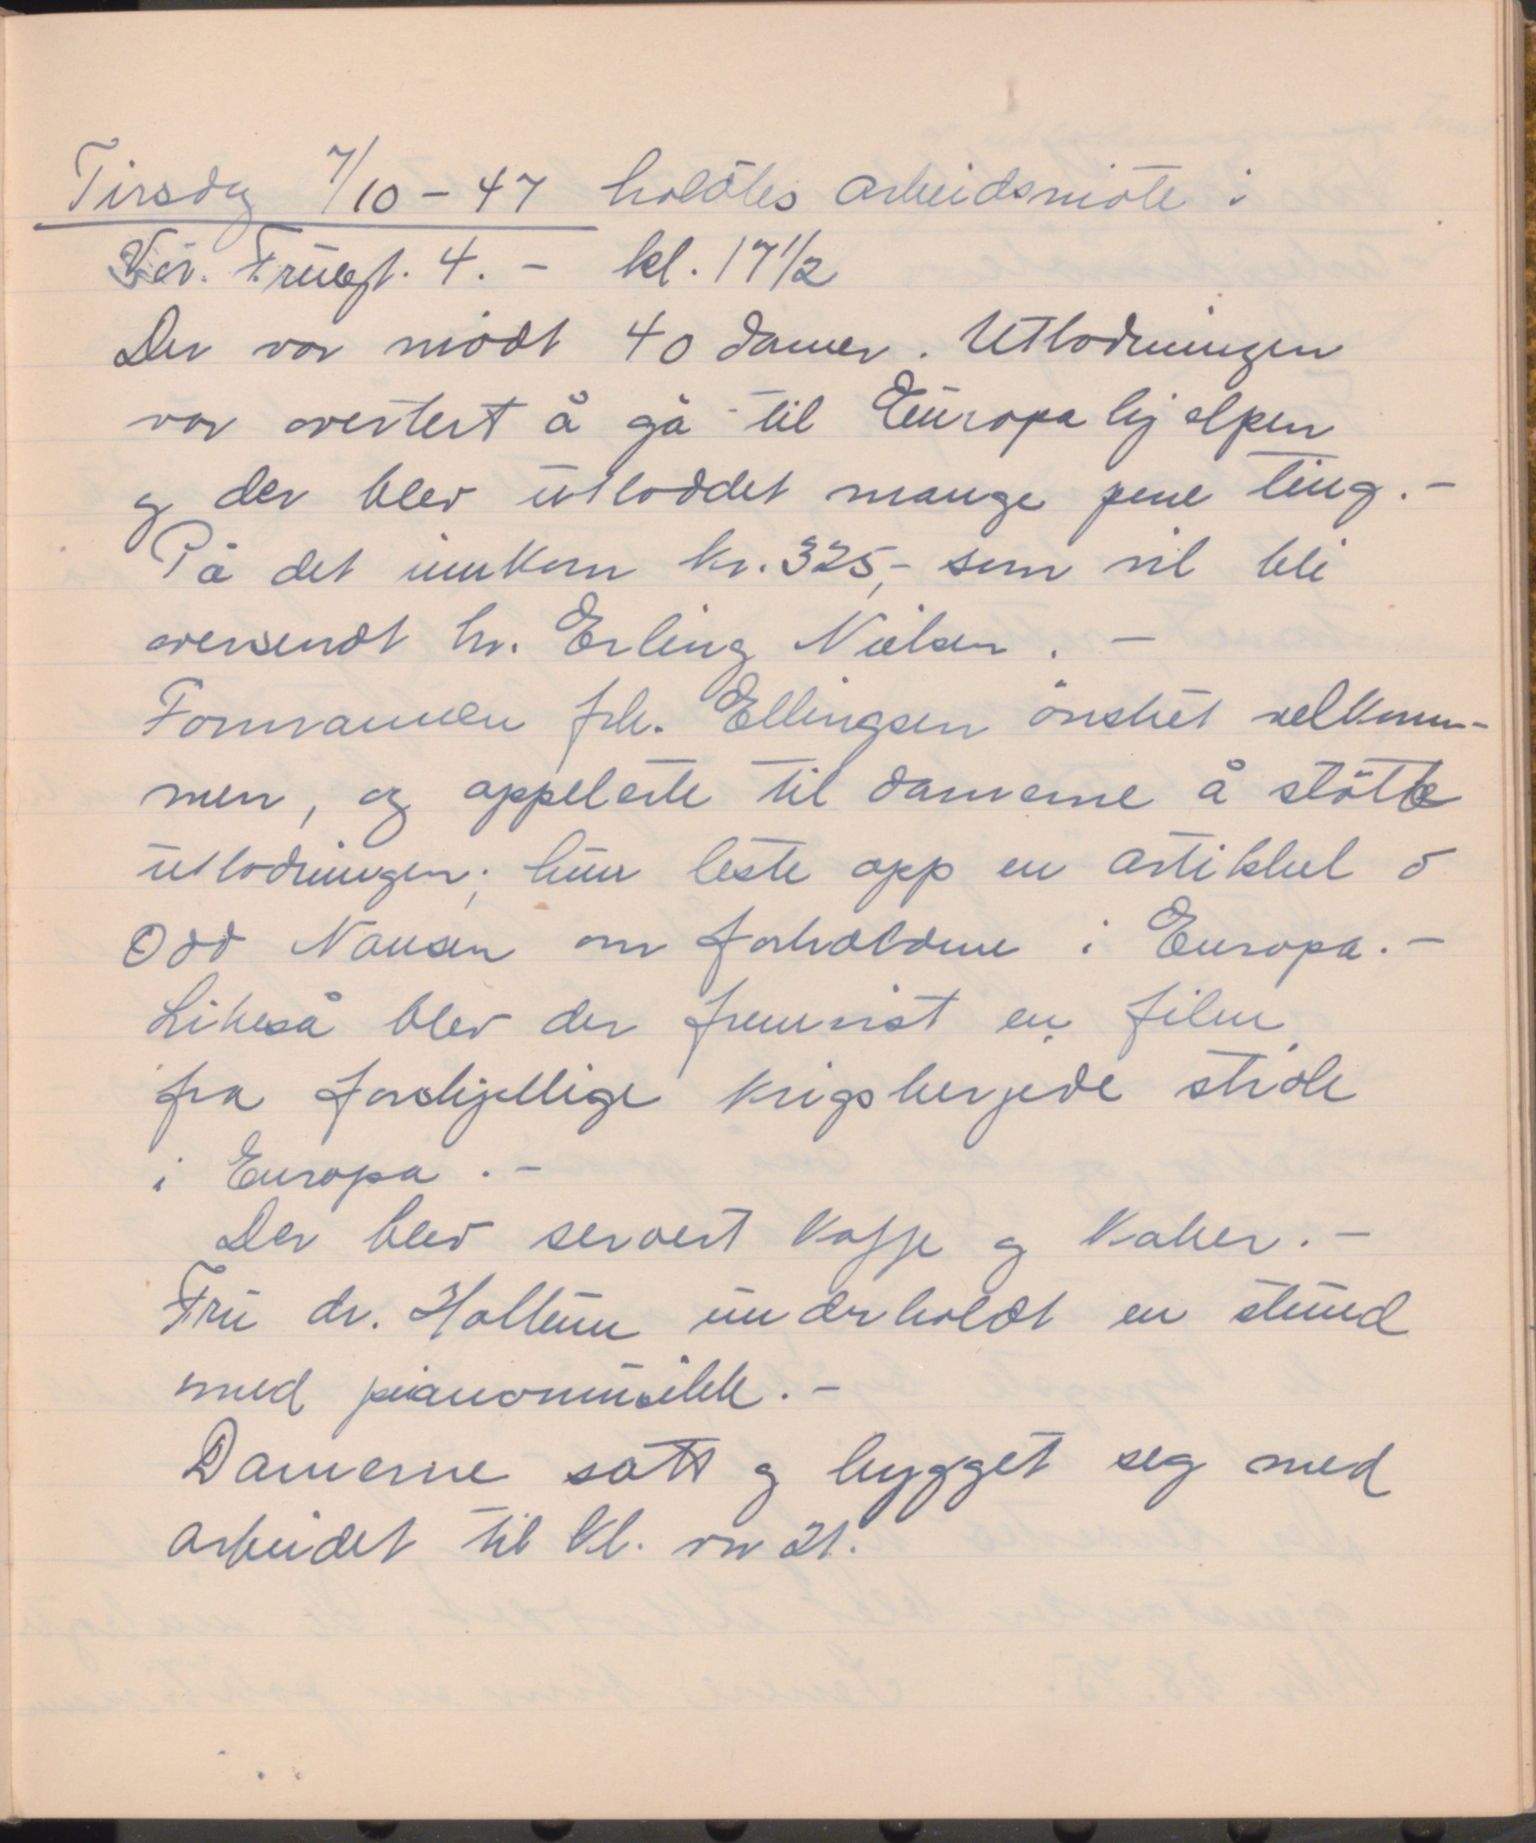 Tirsdag 7/10 - 47 holdtes arbeidsmöte i
Vor. Fruegt. 4. - kl. 17 1/2
Der var mödt 40 damer. Utlodningen
var avertert å gå til Europahjelpen
og der blev utloddet mange pene ting. -
På det innkom kr. 325,- som vil bli
oversendt hr. Erling Nielsen. -
Formannen frk. Ellingsen önsket velkom-
men, og appelerte til damerne å stötte
utlodningen; hun leste opp en artikkel
Odd Nansen om forholdene i Europa. -
Likeså blev der fremvist en film
fra forskjellige krigsherjede strök
i Europa. -
Der blev servert kaffe og kaker. -
Fru dr. Holtum underholdt en stund
med pianomusikk. -
Damerne satt og hygget seg med
arbeidet til kl. var 21.